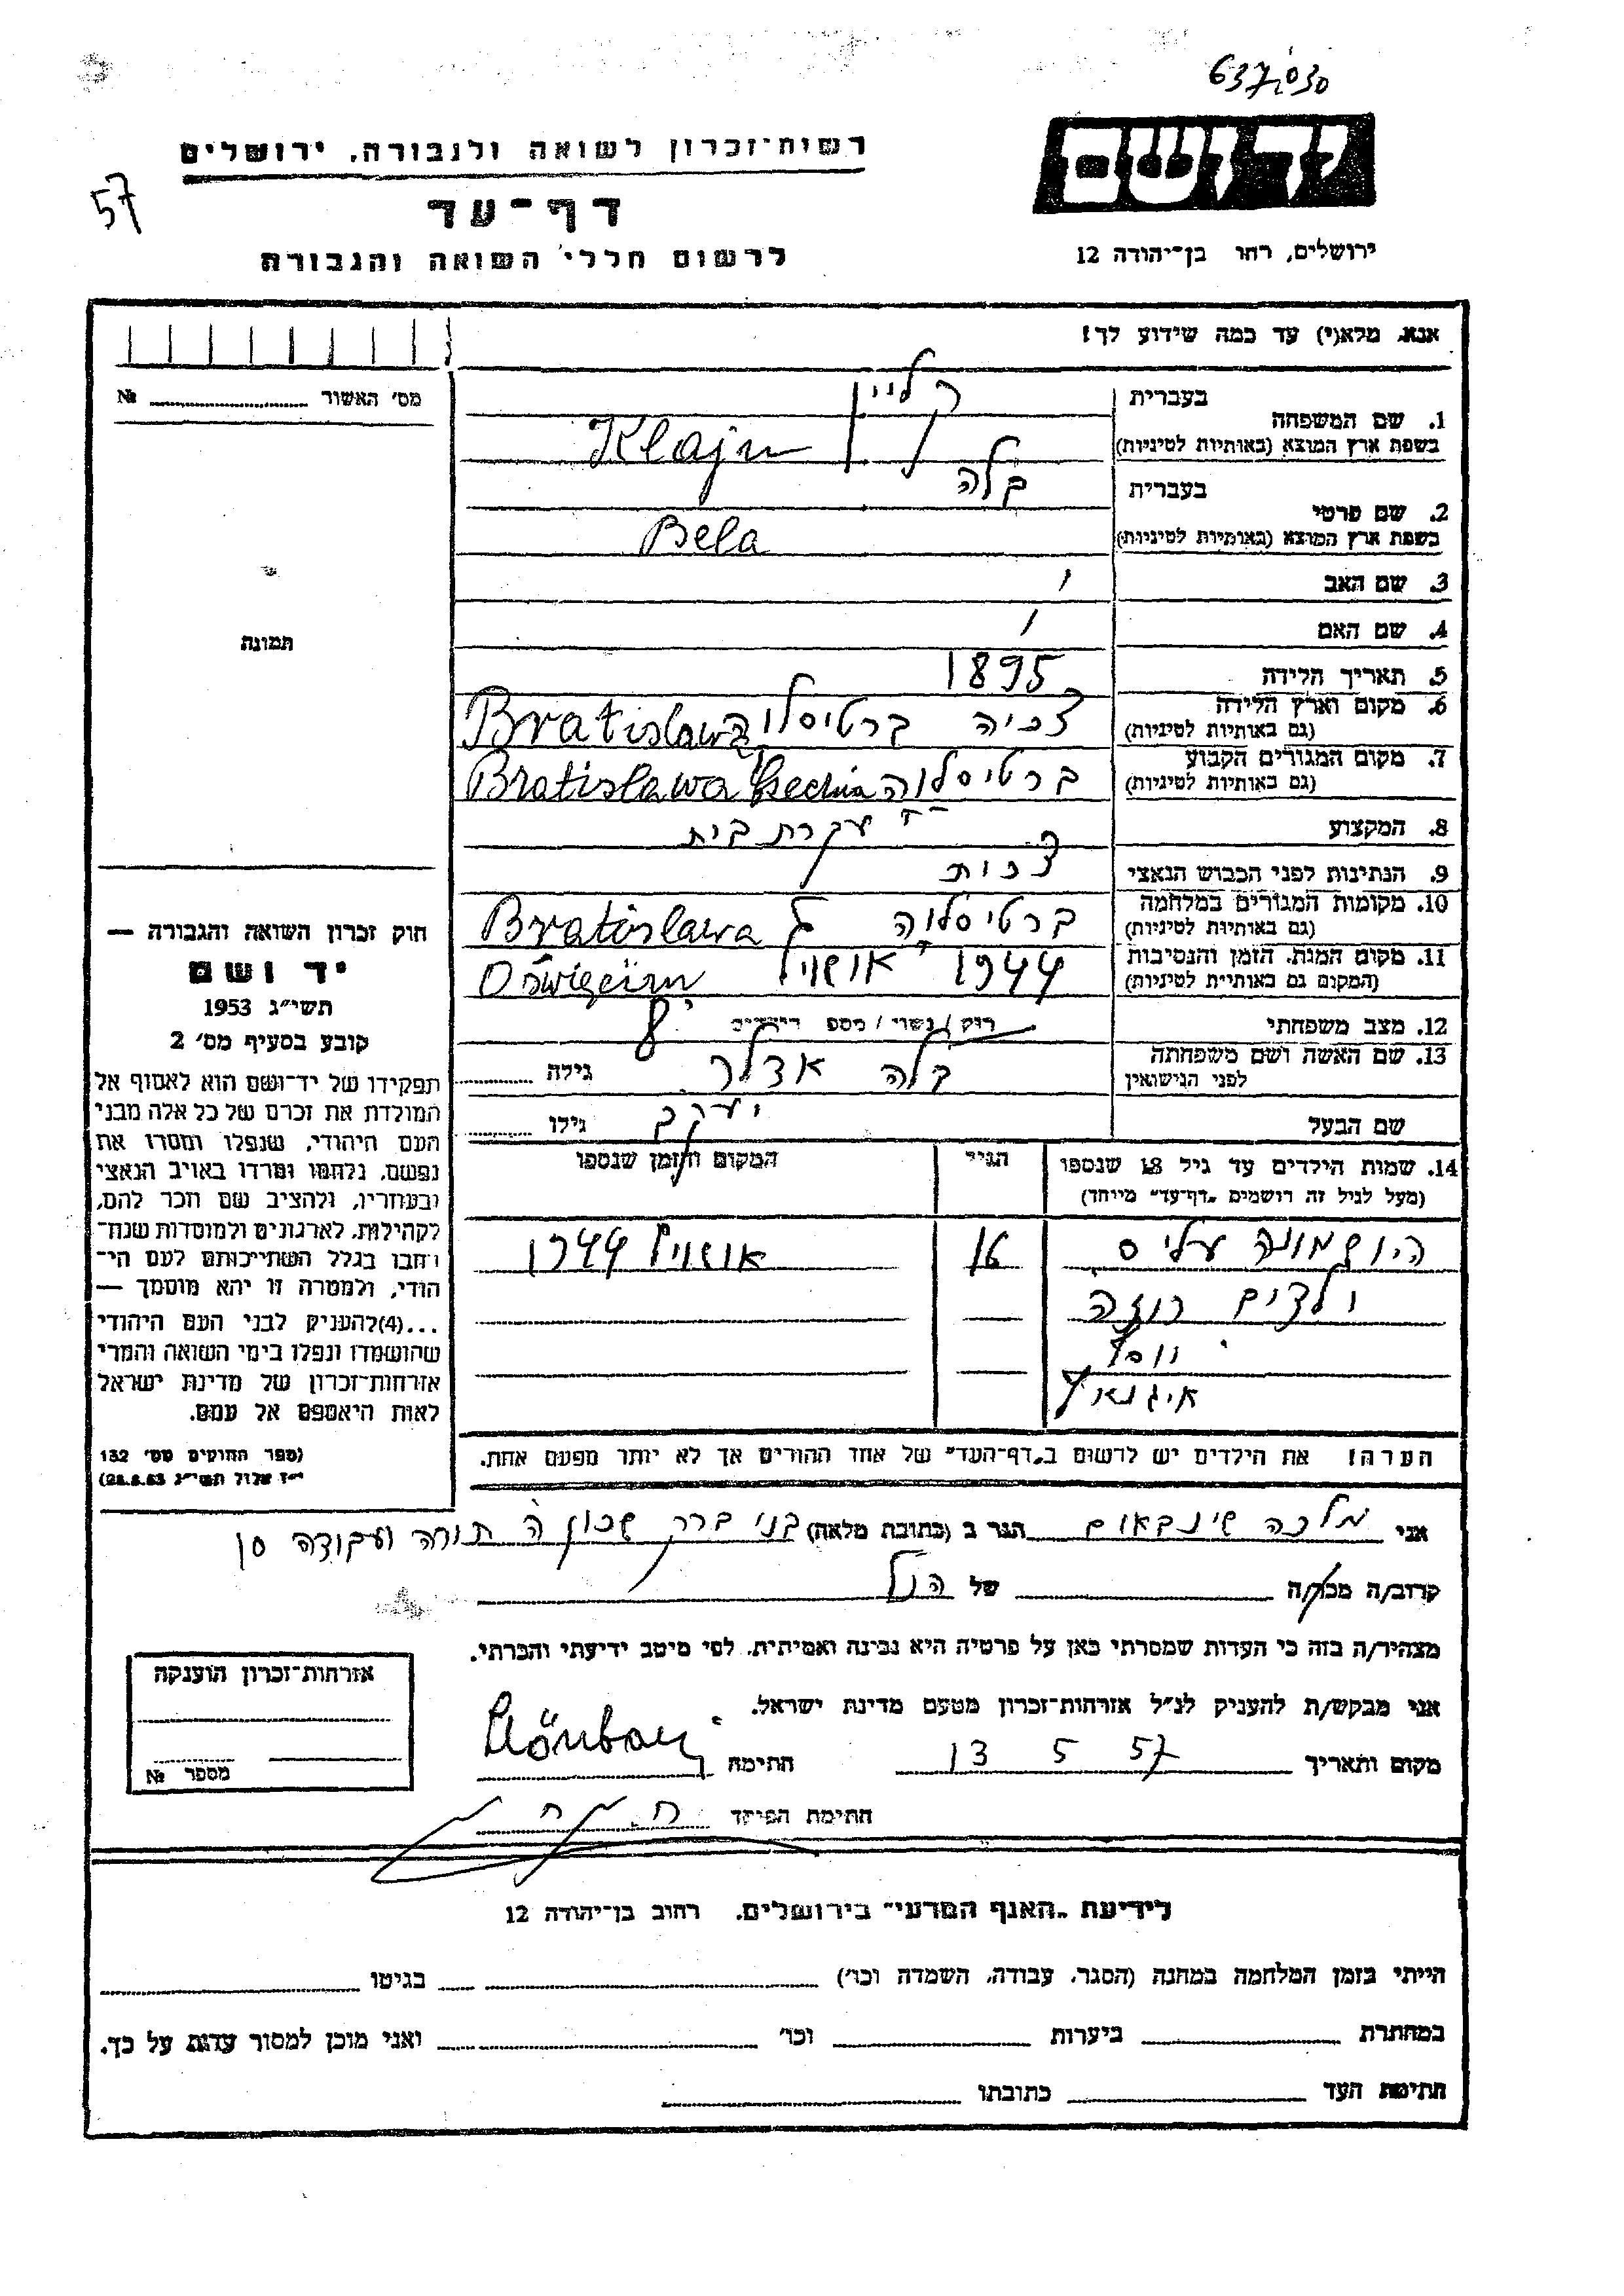 637,030
רשות־זכרון לשואה ולגבורה, ירושלים
יד ושם
57
דף־עד
לרשום חללי השואה והגבורה
ירושלים, רחו בן־יהודה 12
אנא, מלא(י) עד כמה שידוע לך!
מס׳ האשור № 
בעברית קליין
1. שם המשפחה
בשפת ארץ המוצא (באותיות לטיניות) Klajn
בעברית בלה
2. שם פרטי
בשפת ארץ המוצא (באותיות לטיניות) Bela
3. שם האב
4. שם האם
תמונה
5. תאריך הלידה 1895
6. מקום וארץ הלידה צכיה ברטיסלוה Bratislawa
(גם באותיות לטיניות)
7. מקום המגורים הקבוע ברטיסלוה Bratislawa
(גם באותיות לטיניות)
8. המקצוע עקרת בית
9. הנתינות לפני הכבוש הנאצי צכות
10. מקומות המגורים במלחמה ברטיסלוה Bratislawa
(גם באותיות לטיניות)
11. מקום המות, הזמן והנסיבות 1944 Oświęcim
(המקום גם באותיות לטיניות)
12. מצב משפחתי רוק/נשוי/מספר הילדים 8
13. שם האשה ושם משפחתה בלה אדלר גילה
לפני הנישואין
שם הבעל יעקב גילו
חוק זכרון השואה והגבורה —
יד ושם
תשי״ג 1953
קובע בסעיף מס׳ 2
תפקידו של יד־ושם הוא לאסוף אל
המולדת את זכרם של כל אלה מבני
העם היהודי, שנפלו ומסרו את
נפשם, נלחמו ומרדו באויב הנאצי
ובעוזריו, ולהציב שם וזכר להם,
לקהילות, לארגונים ולמוסדות שנח־
רבו בגלל השתייכותם לעם הי־
הודי, ולמטרה זו יהא מוסמך —
...(4) להעניק לבני העם היהודי
שהושמדו ונפלו בימי השואה והמרי
אזרחות־זכרון של מדינת ישראל
לאות היאספם אל עמם.
(ספר החוקים מס׳ 132
י״ז אלול תשי״ג 28.8.53)
14. שמות הילדים עד גיל 18 שנספו הגיל המקום והזמן שנספו
(מעל לגיל זה רושמים „דף־עד״ מיוחד)
16 1944
ילדים רוזה
יוסף
הערה! את הילדים יש לרשום ב„דף־העד״ של אחד ההורים אך לא יותר מפעם אחת.
אני מלכה שינבאום הגר ב (כתובת מלאה) בני ברק שכון ה תורה ועבודה
קרוב/ה מכר/ה של הנ״ל
מצהיר/ה בזה כי העדות שמסרתי כאן על פרטיה היא נכונה ואמיתית, לפי מיטב ידיעתי והכרתי.
אני מבקש/ת להעניק לנ״ל אזרחות־זכרון מטעם מדינת ישראל.
מקום ותאריך 13 5 57 חתימה
אזרחות־זכרון הוענקה
מספר №
חתימת הפוקד
לידיעת „האגף המדעי״ בירושלים, רחוב בן־יהודה 12
הייתי בזמן המלחמה במחנה (הסגר, עבודה, השמדה וכו׳) בגיטו
במחתרת ביערות וכו׳ ואני מוכן למסור עדות על כך.
חתימת העד כתובתו